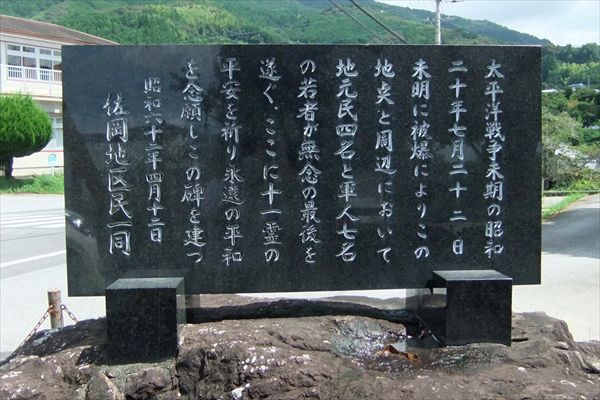 太平洋戦争末期の昭和
二十年七月二十二日
未明に被爆によりこの
地点と周辺において
地元民四名と軍人七名
の若者が無念の最後を
遂ぐ、ここに十一霊の
平安を祈り永遠の平和
を念願しこの碑を建つ
昭和六十二年四月十二日
佐岡地区民一同